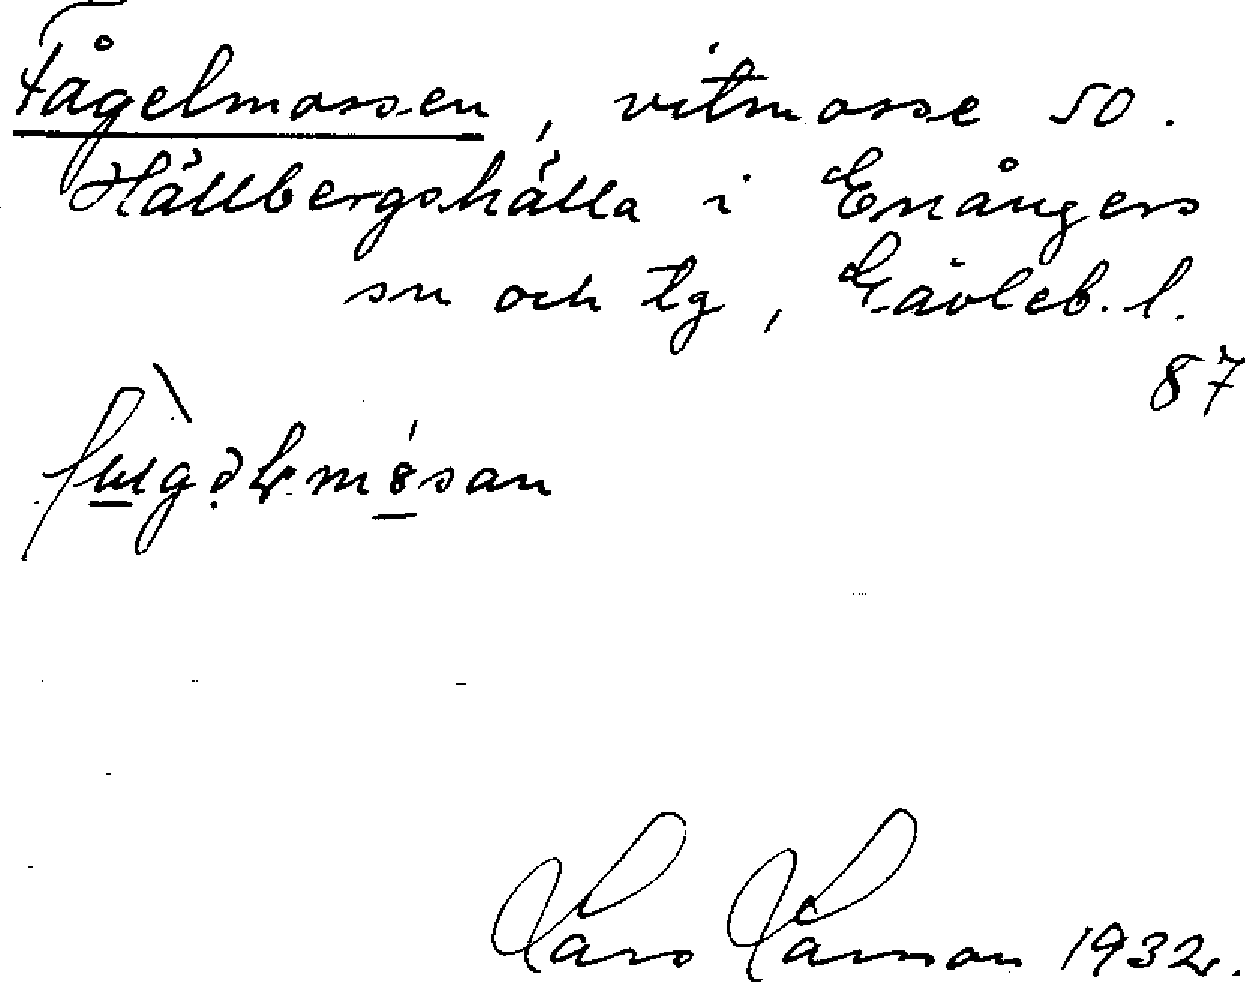 Fågelmossen, vitmosse SO.
Hällbergshälla i Enångers
sn och tg, Gävleb. l.
87
Lars Larson 1932.